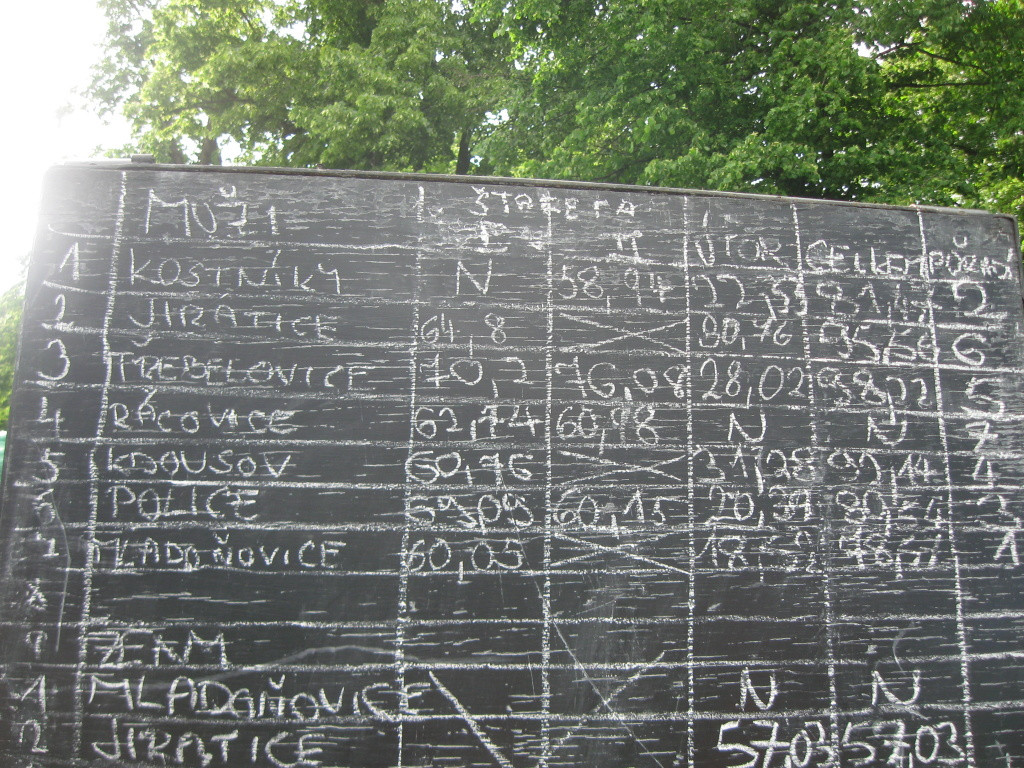 MUŽI ŠTAFETA
I II ÚTOK CELKEM POŘADÍ
1 KOSTNÍKY N 58,94 22,33 5
2 JIRATICE 64,8 30,76 95,56 6
3 TŘEBELOVICE 70,2 76,08 28,02 98,22 5
4 RÁCOVICE 62,74 60,98 N N 7
5 KDOUSOV 60,76 31,28 92,14 4
POLICE 59,09 60,15 20,39
MLADOŇOVICE 60,05 1
8
ŽENY
1 MLADOŇOVICE N N
2 JIRATICE 57,03 57,03